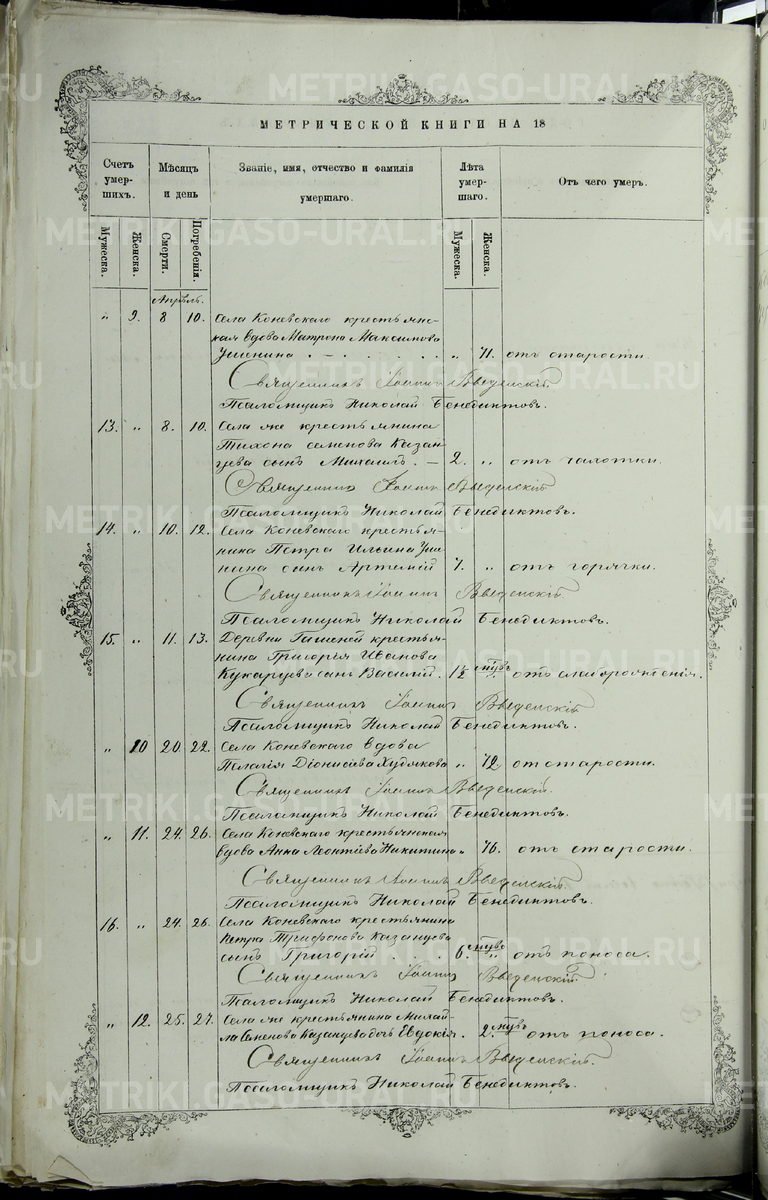 METRIKI.GASO-URAL.RU
МЕТРИЧЕСКОЙ КНИГИ НА 18
Счетъ умер- шихъ.
Мѣсяцъ и день
Званіе, имя, отчество и фамилія умершаго.
Лѣта умер- шаго.
Отъ чего умеръ.
Мужеска.
Женска.
Смерти.
Погребенія.
Мужеска.
Женска.
Апрѣль.
" 9. 8 10. Села Коневскаго крестьянс-
кая вдова Матрона Максимова
" 71. отъ старости.
Священникъ Іоаннъ Введенскій
Псаломщикъ Николай Бенедиктовъ.
13. " 8. 10. Села же крестьянина
Тихона Семенова Казан-
цева сынъ Михаилъ. 2. " отъ чахотки.
Священникъ Іоаннъ Введенскій
Псаломщикъ Николай Бенедиктовъ.
14. " 10. 12. Села Коневскаго крестья-
нина Петра Ильина
сынъ Артемій 7. " отъ горячки.
Священникъ Іоаннъ Введенскій
Псаломщикъ Николай Бенедиктовъ.
15. " 11. 13. Деревни крестья-
нина Григорія Иванова
Кукарцева сынъ Василій. 1½ отъ слаборожденія.
Священникъ Іоаннъ Введенскій
Псаломщикъ Николай Бенедиктовъ.
" 10 20. 22. Села Коневскаго вдова
Пелагія Діонисіева Худякова " 72. от старости.
Священникъ Іоаннъ Введенскій
Псаломщикъ Николай Бенедиктовъ.
" 11. 24. 26. Села Коневскаго крестьянская
вдова Анна Леонтіева Никитина " 76. отъ старости.
Священникъ Іоаннъ Введенскій
Псаломщикъ Николай Бенедиктовъ.
16. " 24. 26. Села Коневскаго крестьянина
Петра Трифонова Казанцева
сынъ Григорій 6. " отъ поноса.
Священникъ Іоаннъ Введенскій
Псаломщикъ Николай Бенедиктовъ.
" 12. 25. 27. Села же крестьянина Михаи-
ла Семенова Казанцева дочь Евдокія. 2. отъ поноса.
Священникъ Іоаннъ Введенскій.
Псаломщикъ Николай Бенедиктовъ.